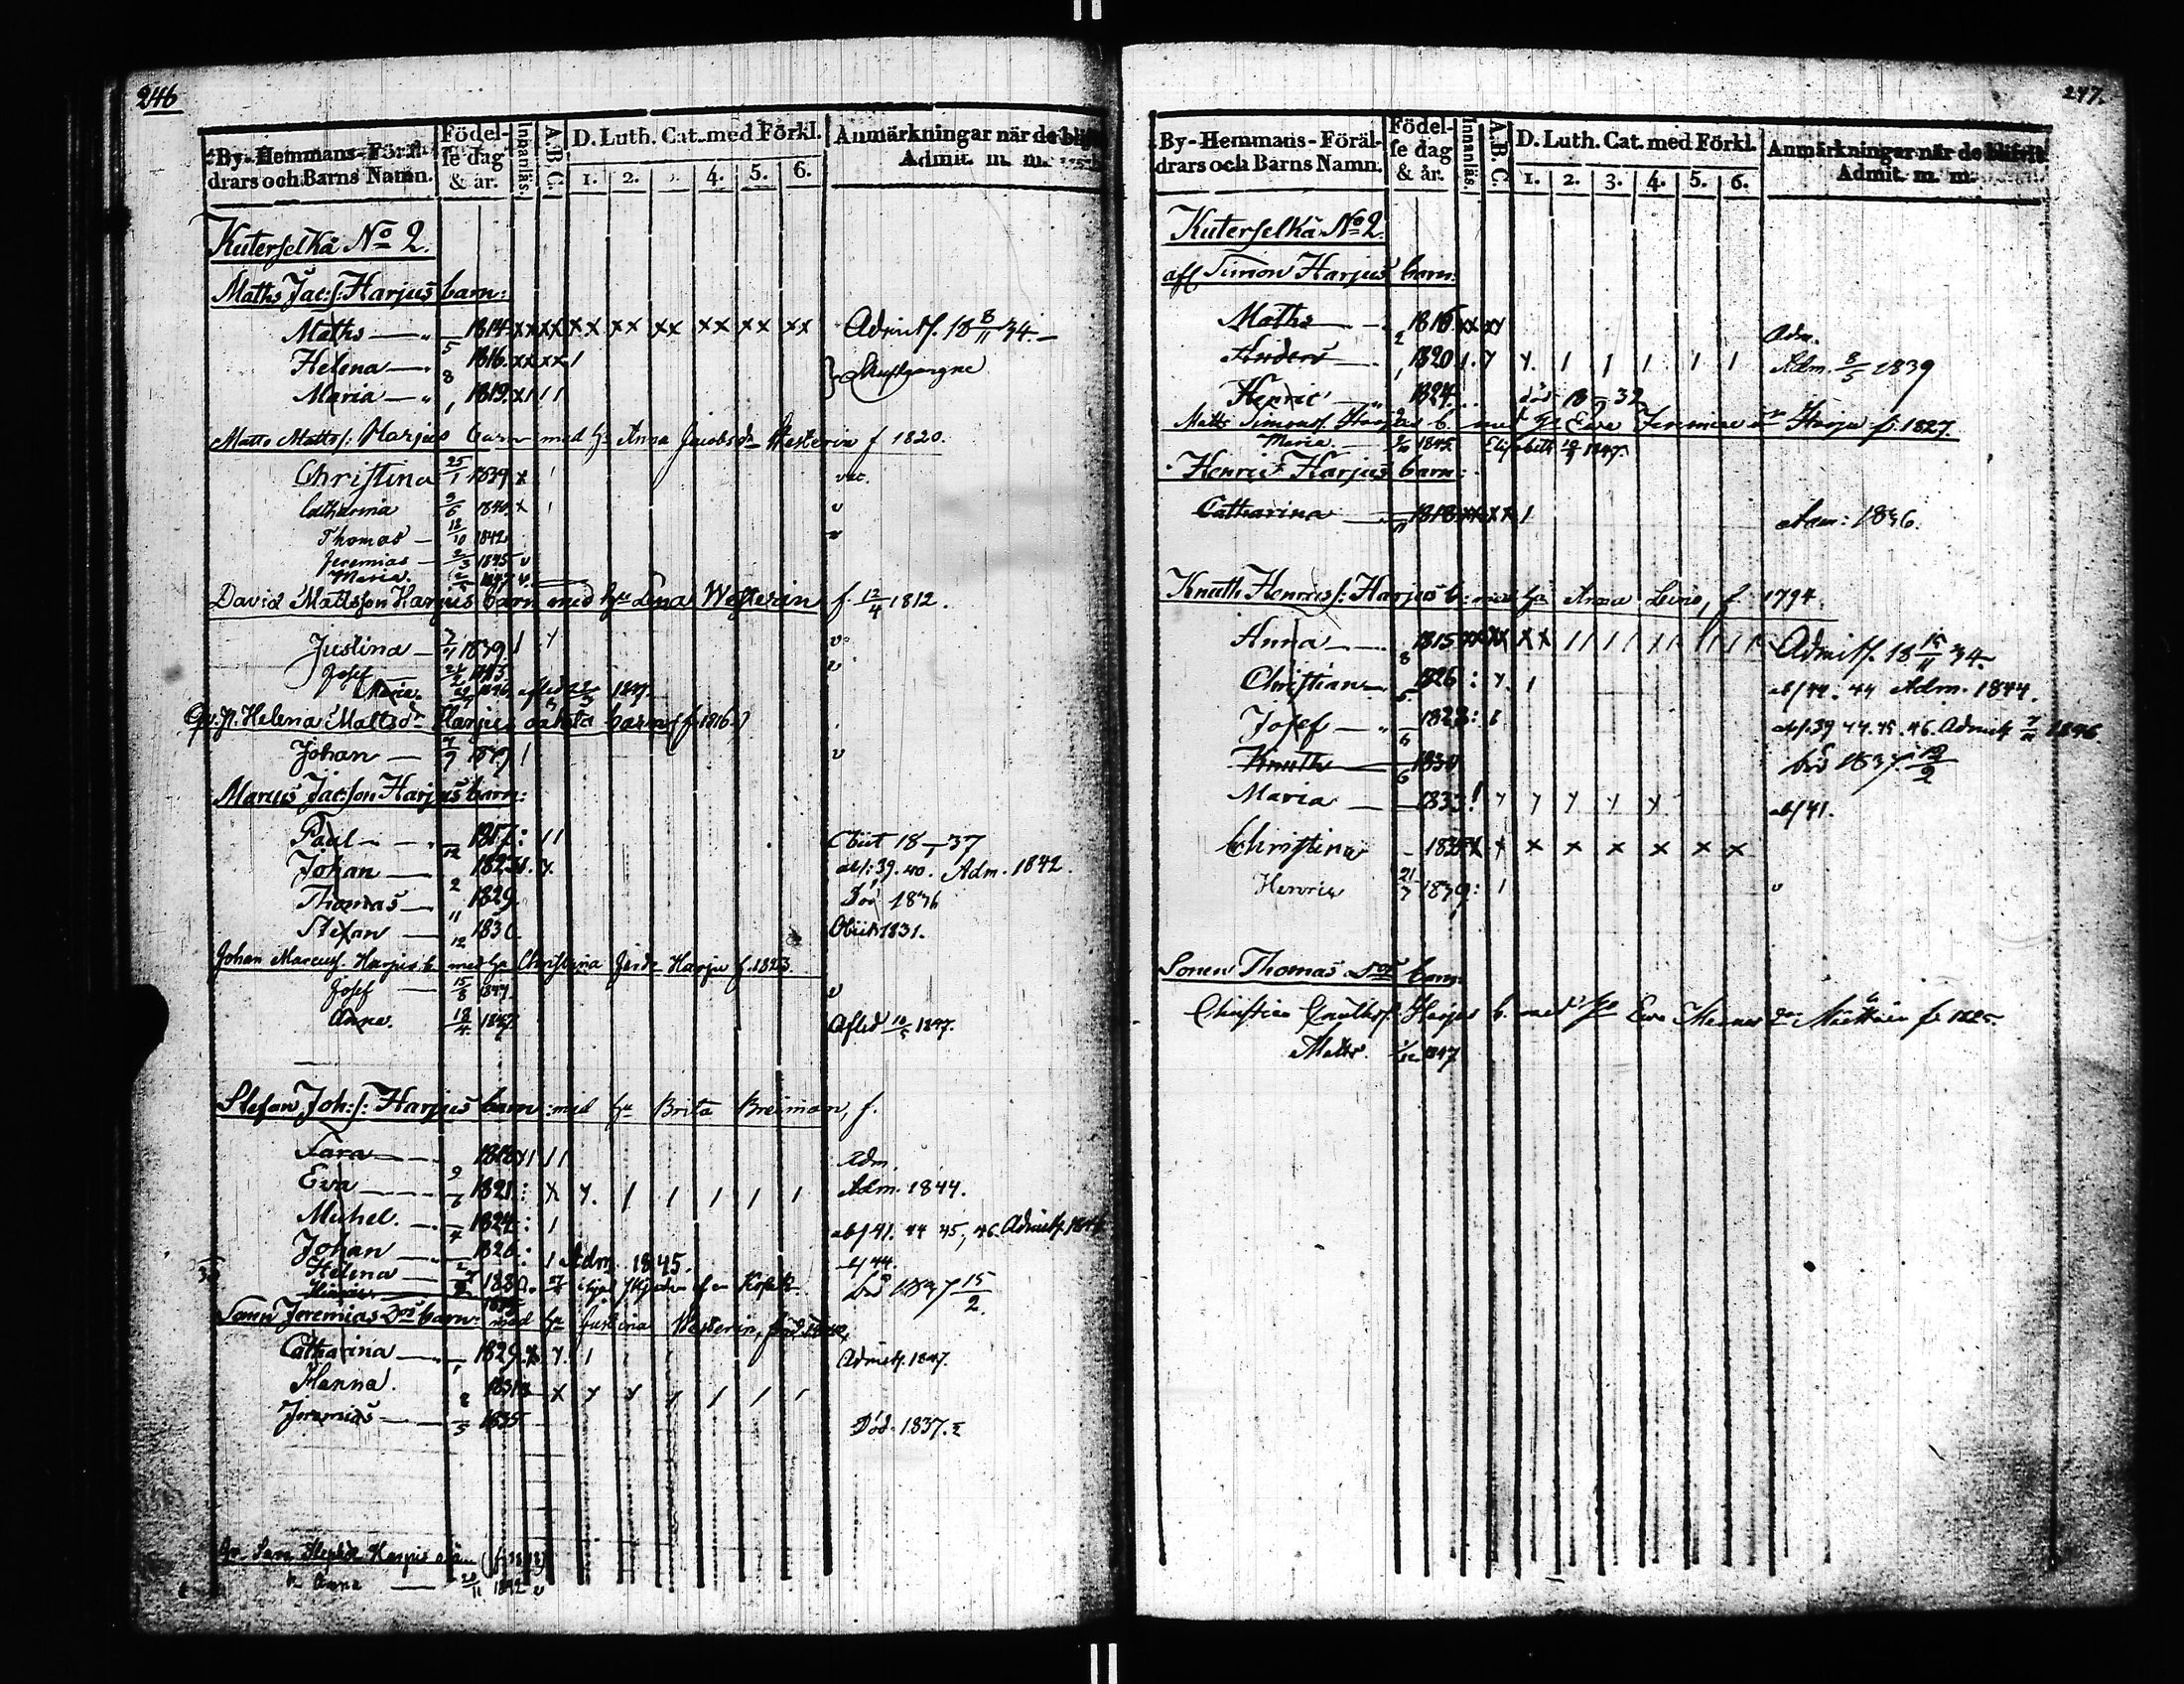 246
By-Hemmans-Föräl-drars och Barns Namn. Födel-se dag & år. Innanläs. A.B.C. D. Luth. Cat. med Förkl. 1. 2. 3. 4. 5. 6. Anmärkningar när de blifvit Admit. m. m.
Kuterselkä No 2.
Maths Jac:s: Harjus barn:
Maths 5 1814 xx xx xx xx xx xx xx xx Admitt. 18 8/11 34.
Helena 8 1816 xx xx 1
Maria 1 1819 x1 11
Matts Matts: Harjus barn med h: Anna Jacobsdr Westerin f 1820.
Christina 25/1 1839 x 1 vac.
Catharina 9/6 1840 x 1 v
Thomas 18/10 1842 v
Jeremias 2/3 1845 v
Maria. 1847 v.
David Mattsson Harjus barn med hu Lena Westerin f. 12/4 1812.
Justina 1839 1 v
Josef v
Maria. 1846 afled 1847
Helena Mattsdr Harjus oäkta barn (f. 1816.)
Johan 1839 1 v
Marcus Jacson Harjus barn:
Paul 12 1817: 11 Obiit 18 37
Johan 2 1823 v. abs: 39. 40. Adm. 1842.
Thomas 11 1829 Död 1836
Stefan 12 1830 Obiit 1831.
Johan Marcuss. Harjus b. med hu Christina Harju f. 1823.
Josef 15/8 1844 v
Anna. 18/4 1847 Afled 1847.
Stefan Joh:s: Harjus barn: med hu Brita Breiman, f.
Sara 9 1818 x1 11 Adm.
Eva 6 1821: x y. 1 1 1 1 1 Adm. 1844.
Michel. 4 1824: 1 abs 41. 44 45, 46. Admitt.
Johan 1826: 1 Adm. 1845. 44.
Helena 1830. död 1837 15/2.
Sonen Jeremias Dos barn: med hu Justina Westerin,
Catharina 1 1829. x y. 1 Admitt. 1847.
Hanna. 8 1831 x y y 1 1 1 1
Jeremias 5 1835 Död. 1837.
Sara Harjus
Anna 20/11 1842 v
247.
By-Hemmans-Föräl-drars och Barns Namn. Födel-se dag & år. Innanläs. A.B.C. D. Luth. Cat. med Förkl. 1. 2. 3. 4. 5. 6. Anmärkningar när de blifvit Admit. m. m.
Kuterselkä No 2.
afl Simon Harjus barn:
Maths 2 1816 xx xx Adm.
Anders 1 1820 1. y y. 1 1 1 1 1 Adm. 8/5 1839
Henric 1824 död 18 32
Matts Simonss. Harjus b. med hu Eva Jeremiae dr Harju f. 1827.
Maria 1845. Elisabeth 1847.
Henric Harjus barn:
Catharina 1818 xx xx 1 Adm: 1836.
Knuth Henrics: Harjus b: med hu Anna f. 1794
Anna 8 1815 xx xx xx 11 11 xx 11 11 Admitt. 18 15/11 34.
Christian 5 1826: y. 1 abs 42. 44 Adm. 1844.
Josef 6 1828: 1 abs. 39 44. 45. 46. Admitt 1846
Knuth 6 1830 död 1837
Maria 1833! y y y y y. abs 41.
Christina 1835 x x x x x x x
Henric 21/7 1839: 1 v
Sonen Thomas Dos barn:
Christian Knuths: Harjus b. med hu Eva f. 1825.
Matts. 1847